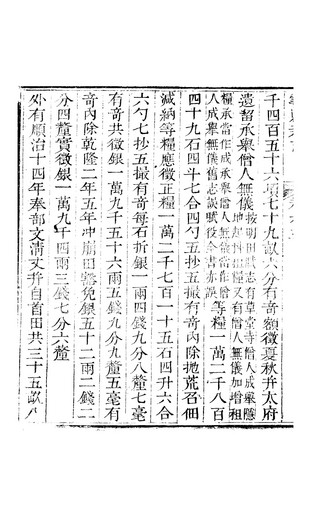 千四百五十六項七十九畝六分有奇額徵夏秋并太府
遺留承舉僧人無儀按明田賦志有草堂寺僧人成舉應
糧承當作成舉僧人無儀舊志誤賦役全書亦誤等糧一萬二千八百
四十九石四斗七合四勺五抄五撮有奇內除拋荒召佃
減納等糧應徵正糧一萬二千七百一十五石四升六合
六勺七抄五撮有奇每石折銀一兩四錢九分八釐七毫
有奇共徵銀一萬九千五十六兩五錢九分九釐五毫有
奇內除乾隆二年五年冲崩田豁免銀五十二兩二錢二
分四釐實徵銀一萬九千四兩三錢七分六釐
外有順治十四年奉部文淸丈并自首田共三十五畝八